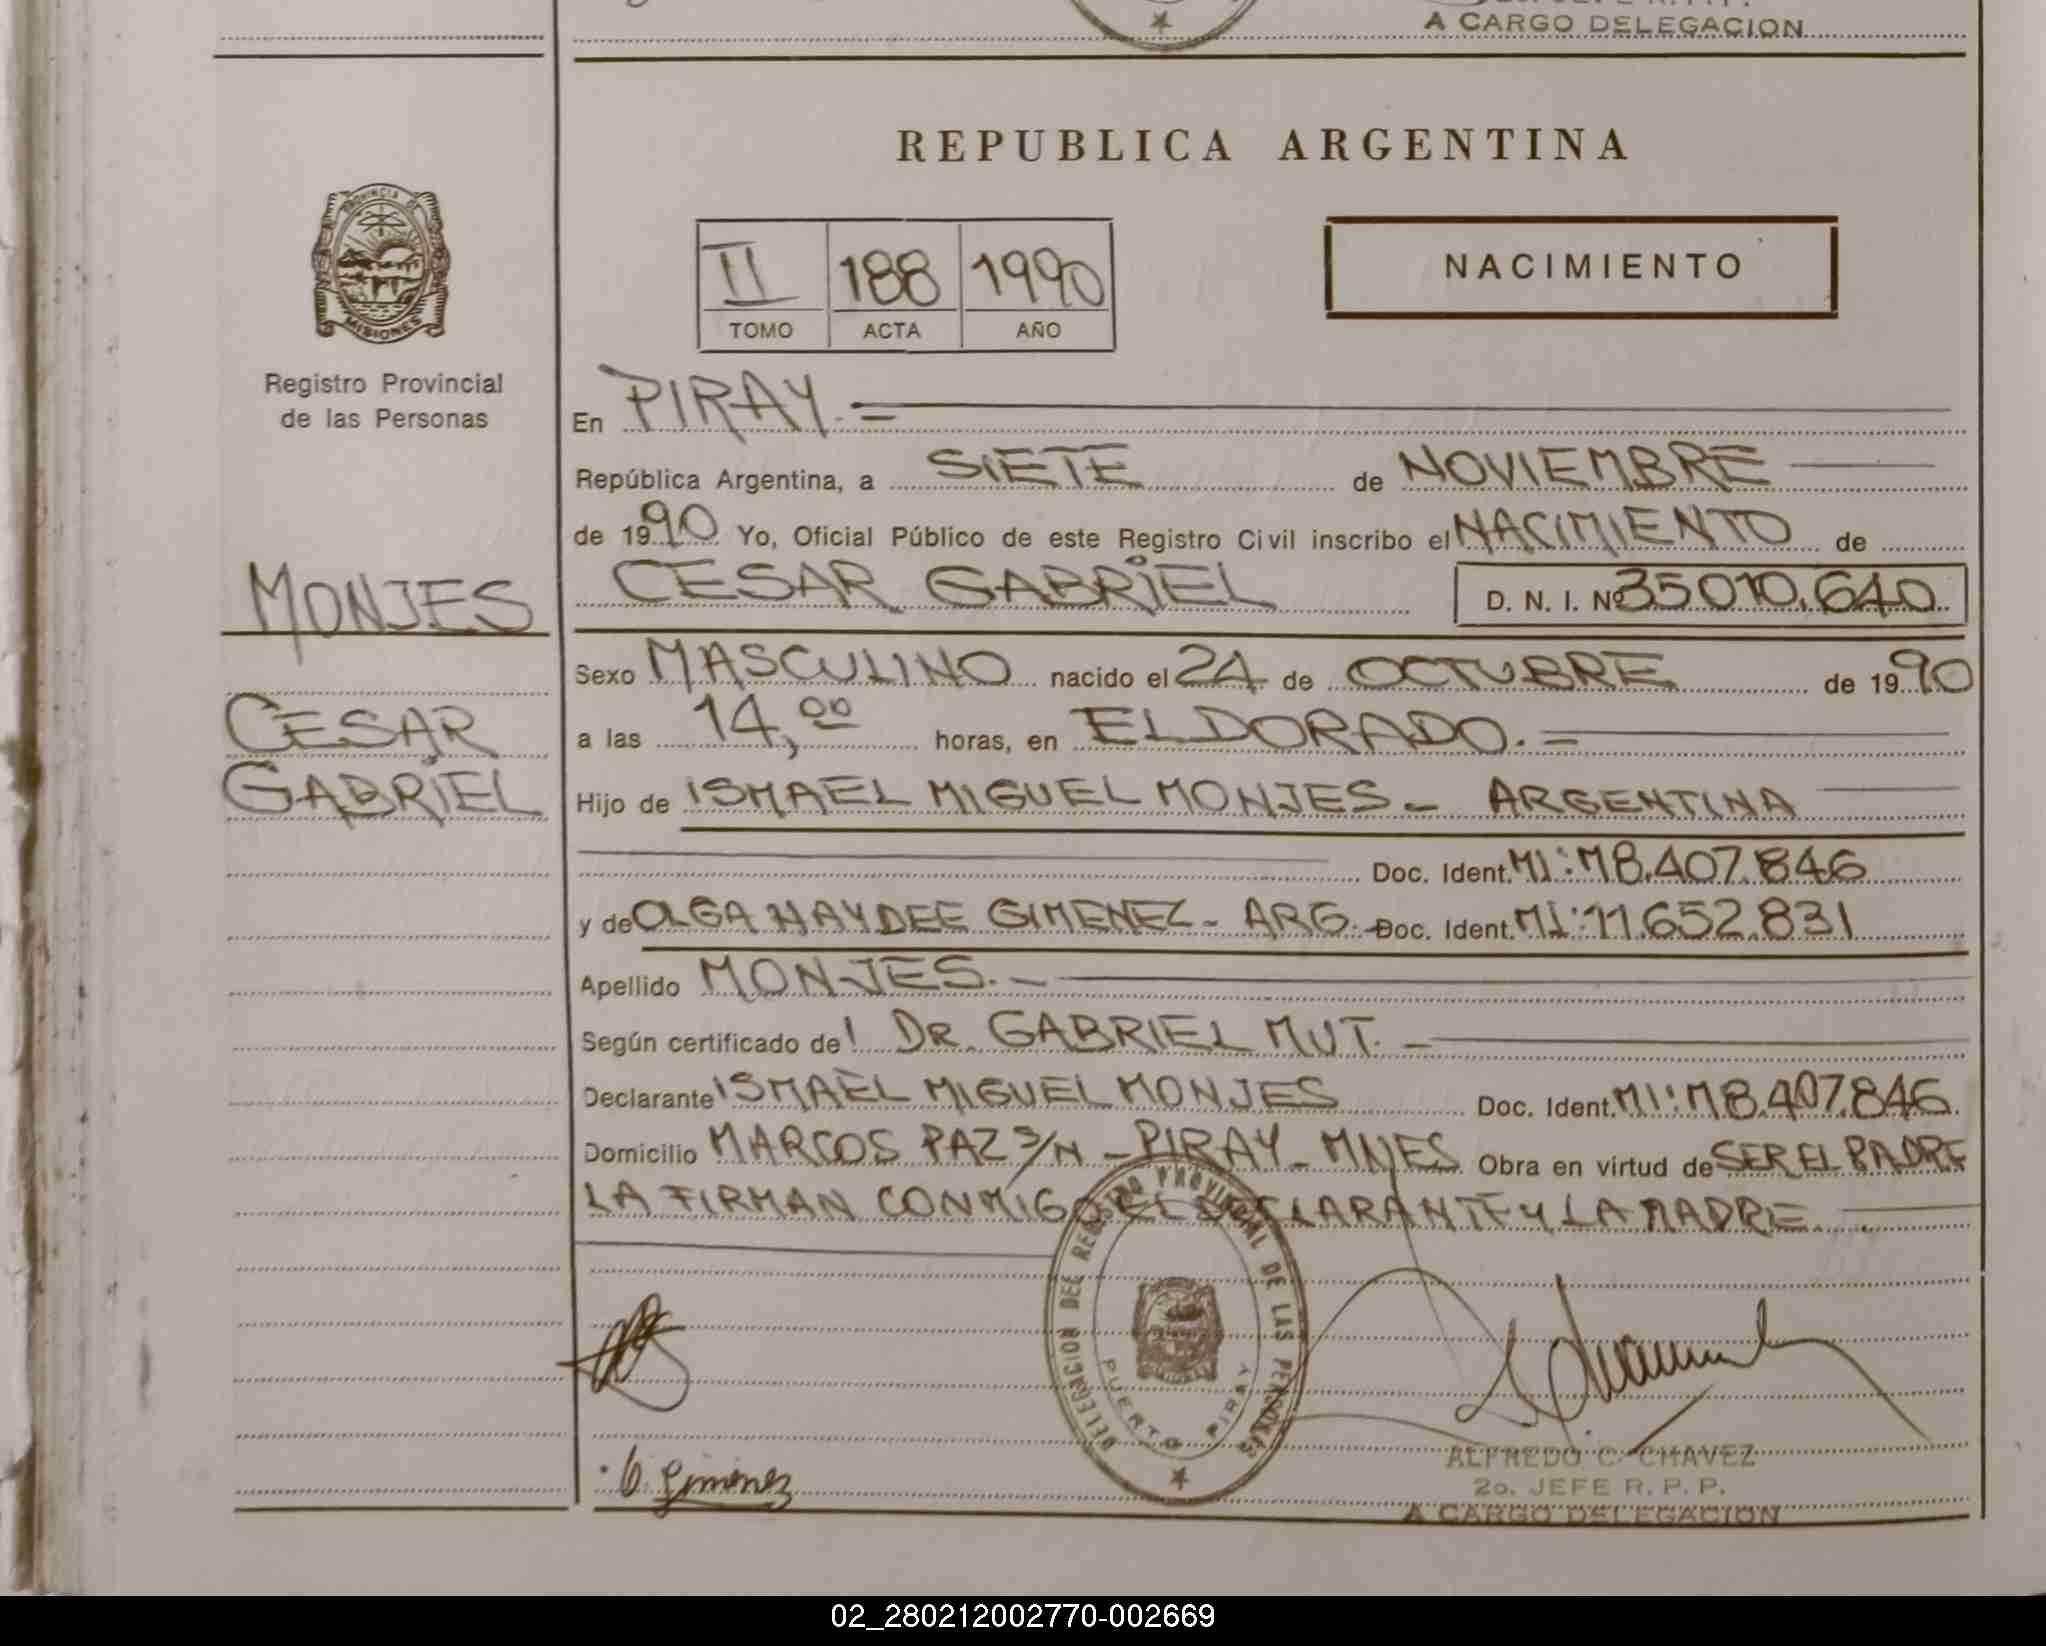 A CARGO DELEGACION
REPUBLICA ARGENTINA
PROVINCIA DE
MISIONES
Registro Provincial
de las Personas
II 188 1990
TOMO ACTA AÑO
NACIMIENTO
En PIRAY.=
República Argentina, a SIETE de NOVIEMBRE
de 1990 Yo, Oficial Público de este Registro Civil inscribo el NACIMIENTO de
CESAR GABRIEL D. N. I. Nº 35010.640
MONJES
CESAR
GABRIEL
Sexo MASCULINO nacido el 24 de OCTUBRE de 1990
a las 14,00 horas, en ELDORADO.=
Hijo de ISMAEL MIGUEL MONJES- ARGENTINA
Doc. Ident. MI:M8.407.846
y de OLGA HAYDEE GIMENEZ- ARG.- Doc. Ident. MI:11.652.831
Apellido MONJES.-
Según certificado del Dr. GABRIEL MUT.-
Declarante ISMAEL MIGUEL MONJES Doc. Ident. MI:M8.407.846
Domicilio MARCOS PAZ S/N - PIRAY - MNES Obra en virtud de SER EL PADRE
LA FIRMAN CONMIGO EL DECLARANTE y LA MADRE.
DELEGACION DEL REGISTRO PROVINCIAL DE LAS PERSONAS
PUERTO PIRAY
O. Gimenez
ALFREDO C. CHAVEZ
2o. JEFE R. P. P.
A CARGO DELEGACION
02_280212002770-002669